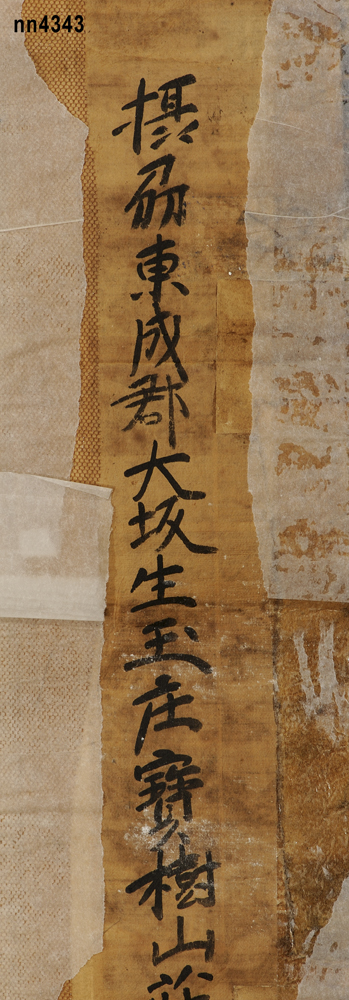 nn4343
摂刕東成郡大坂生玉庄寳樹山